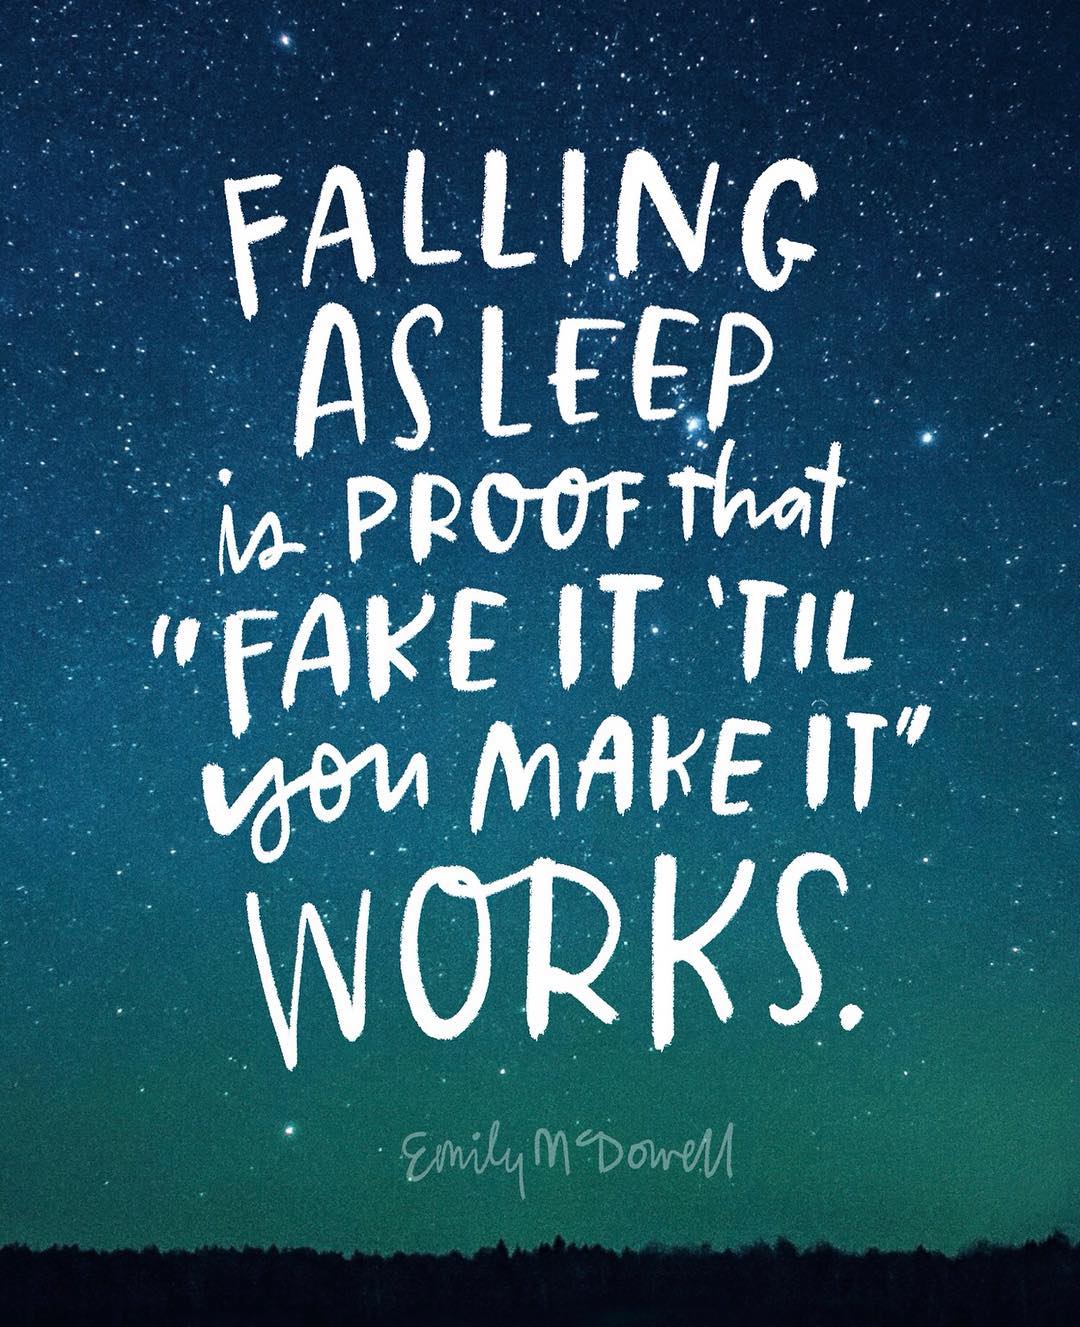 FALLING
ASLEEP
is PROOF that
"FAKE IT 'TIL
you MAKE IT"
WORKS.
Emily McDowell